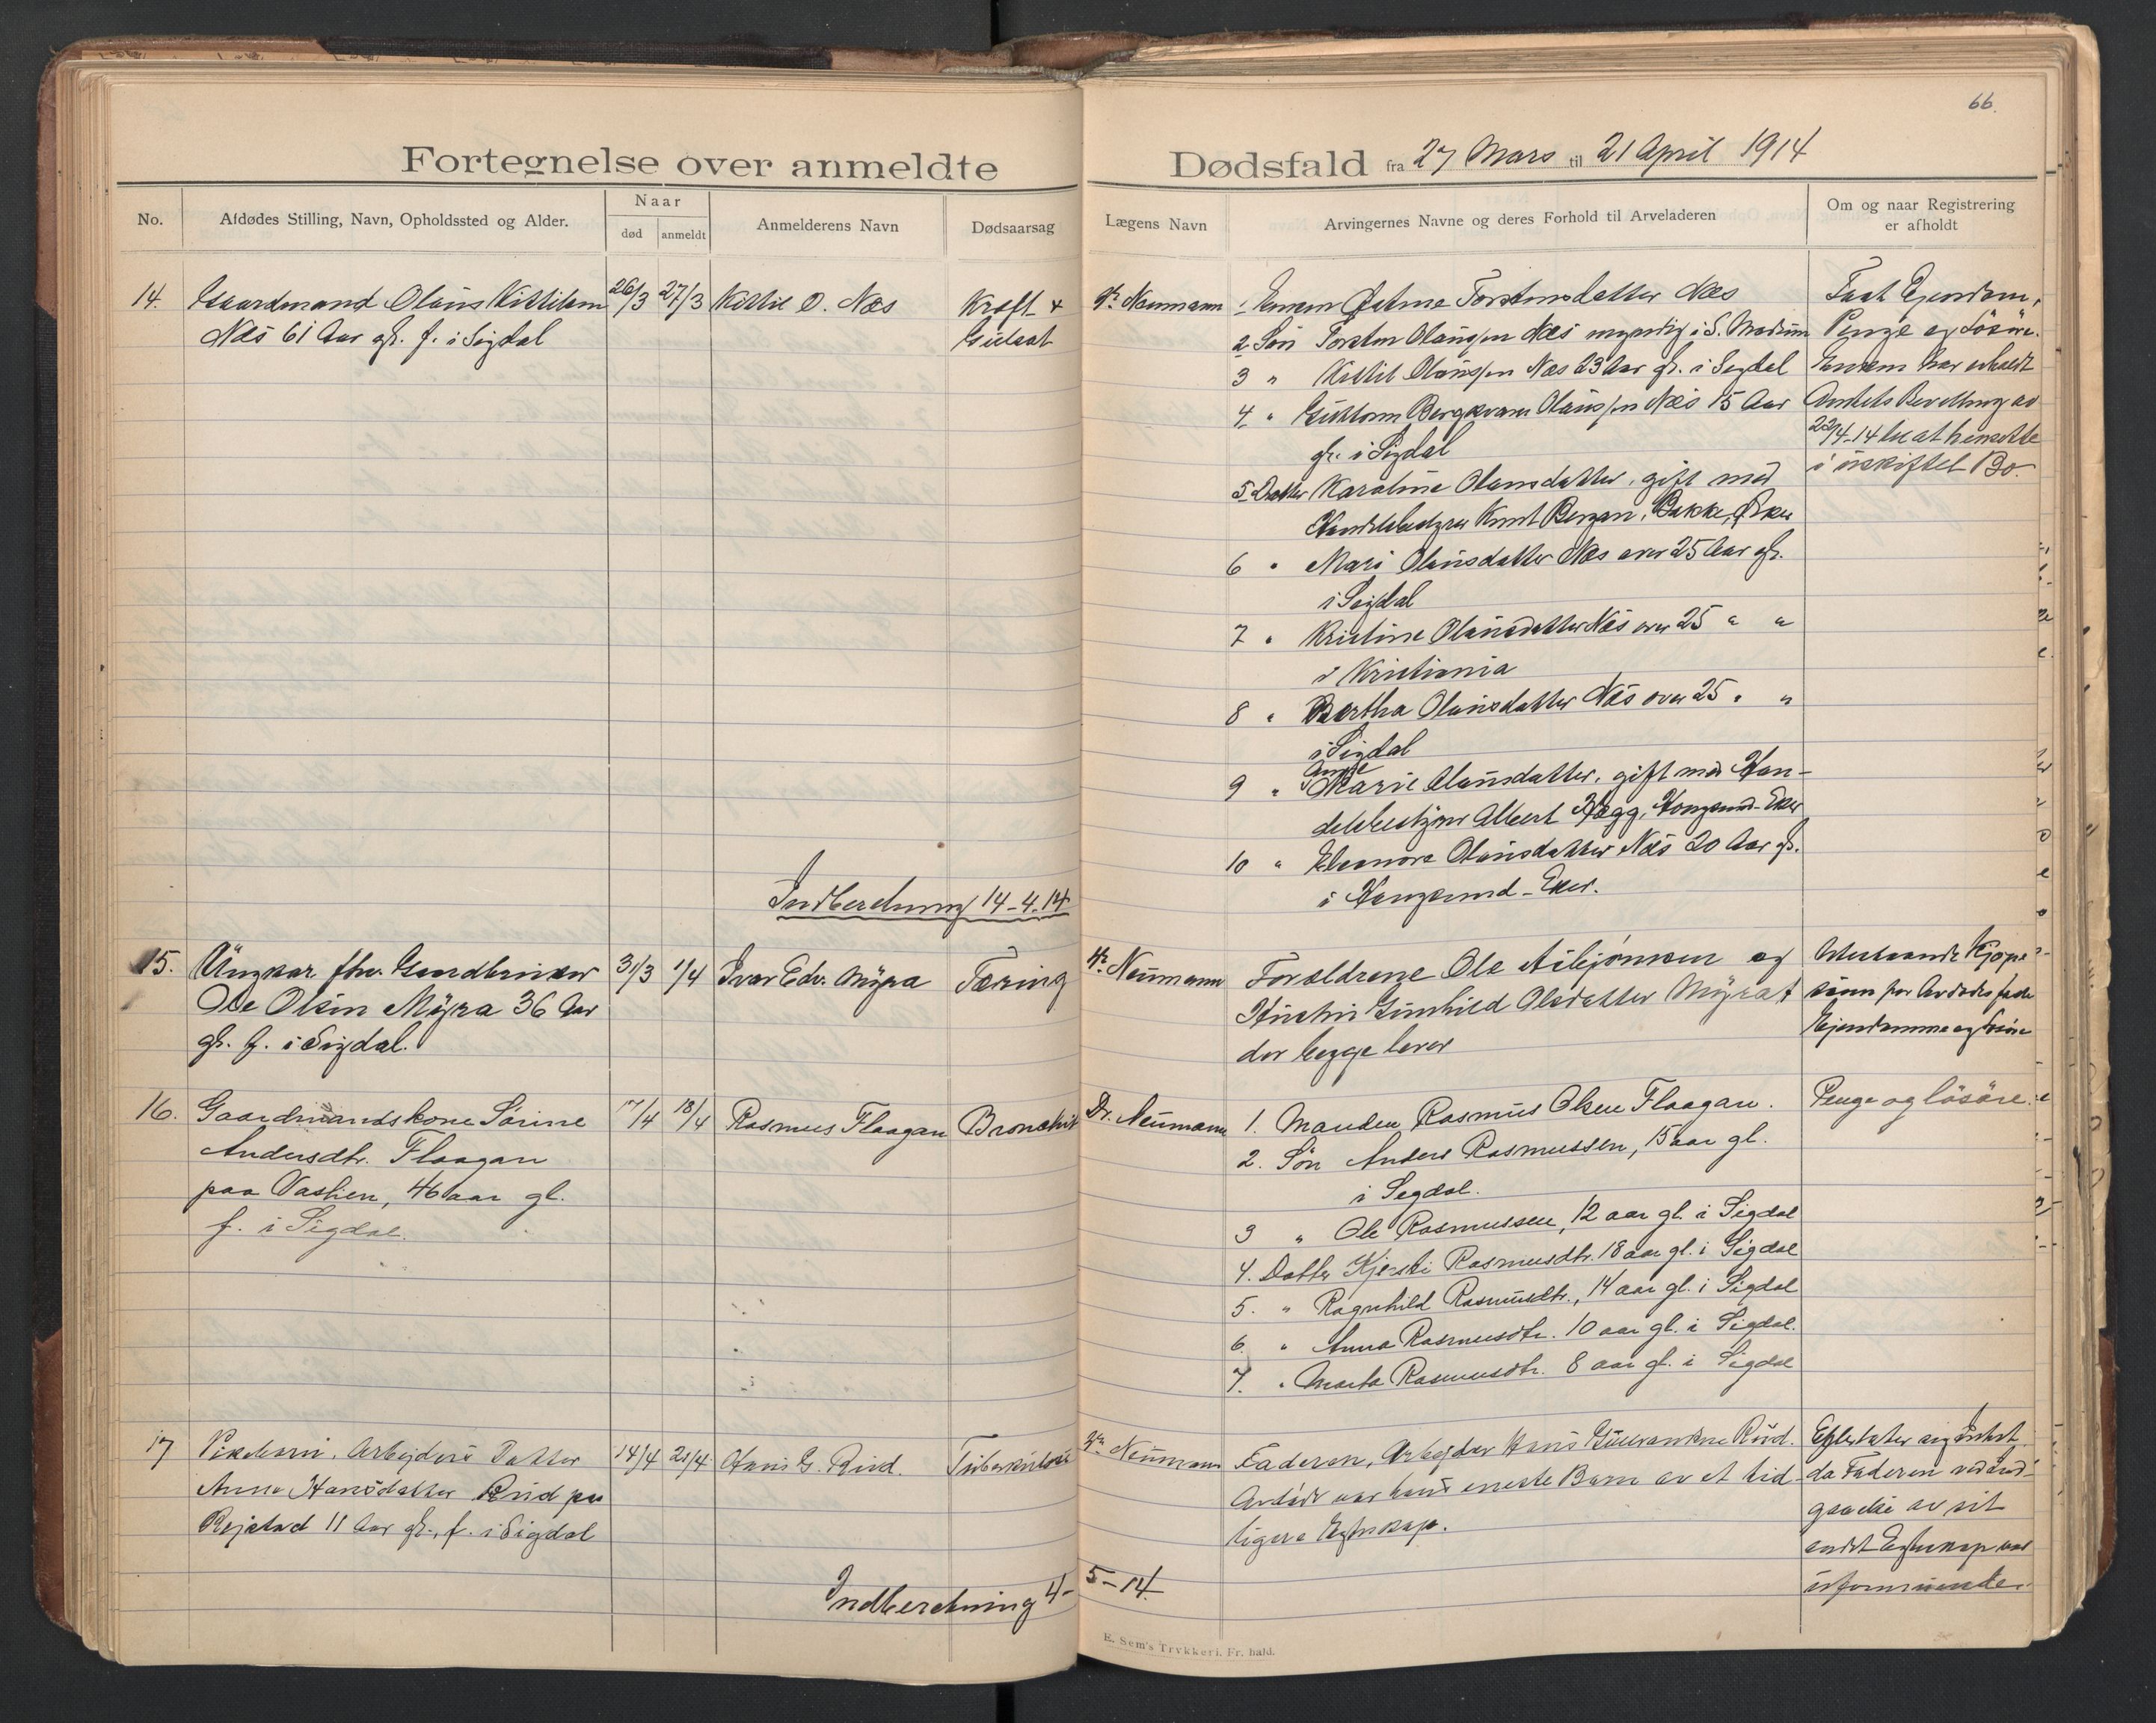 66.
Fortegnelse over anmeldte Dødsfald fra 27 Mars til 21 April 1914
No.
Afdødes Stilling, Navn, Opholdssted og Alder.
Naar
død
anmeldt
Anmelderens Navn
Dødsaarsag
Lægens Navn
Arvingernes Navne og deres Forhold til Arveladeren
Om og naar Registrering
er afholdt
14.
Gaardmand Olaus Kittilsen
Næs 61 Aar gl. f. i Sigdal
26/3
27/3
Kittil O. Næs
Kræft
Dr. Neumann
1 Enken Torstensdatter Næs
2 Søn Torsten Olausen Næs myndig i S. Modum
3 " Kittil Olaussen Næs 23 Aar gl. i Sigdal
4 " Guttorm Bergkvam Olaussen Næs 15 Aar
gl. i Sigdal
5 Datter Karoline Olausdatter, gift med
Knut Bergan, Bakke, Eker
6 " Mari Olausdatter Næs over 25 Aar gl.
i Sigdal
7 " Kristine Olausdatter Næs over 25 " "
i Kristiania
8 " Bertha Olausdatter Næs over 25 " "
i Sigdal
9 " Marie Olausdatter, gift med Han-
delsbestyrer Albert Hægg, Hougsund-Eker
10 " Eleonora Olausdatter Næs 20 Aar gl.
i Hougsund-Eker.
Fast Ejendom,
Penge og Løsøre.
Enken har erholdt
Amtets Bevilling av
22/4-14 til at hensidde
i uskiftet Bo.
Indberetning 14-4-14
15.
Ungkar fhv. Gaardbruker
Ole Olsen Myra 36 Aar
gl. f. i Sigdal.
31/3
1/4
Ivar Edv. Myra
Tæring
Dr. Neumann
Forældrene Ole Asbjørnsen og
Hustru Gunhild Olsdatter Myra
der begge lever
Utestaaende Kjøpe-
sum for Avdødes faste
Ejendomme og Løsøre
16.
Gaardmandskone Sørine
Andersdtr. Flaagan
paa Vaslien, 46 aar gl.
f. i Sigdal.
17/4
18/4
Rasmus Flaagan
Bronchit
Dr. Neumann
1. Manden Rasmus Olsen Flaagan.
2. Søn Anders Rasmussen, 15 aar gl.
i Sigdal.
3 " Ole Rasmussen, 12 aar gl. i Sigdal
4. Datter Kjersti Rasmusdtr. 18 aar gl. i Sigdal
5. " Ragnhild Rasmusdtr., 14 aar gl. i Sigdal
6. " Anna Rasmusdtr. 10 aar gl. i Sigdal.
7. " Marta Rasmusdtr. 8 aar gl. i Sigdal
Penge og løsøre.
17
Pikebarn, Arbejders Datter
Anne Hansdatter Rud paa
Rejstad 11 Aar gl., f. i Sigdal
14/4
21/4
Hans G. Rud.
Tuberkulose
Dr. Neumann
Faderen, Arbejder Hans Gulbrandsen Rud.
Avdøde var hans eneste Barn av et tid-
ligere Egteskap.
Efterlater sig intet
da Faderen ved Ind-
gaaelse av sit
andet Egteskap var
uformuende.
Indberetning 4-5-14.
E. Sem's Trykkeri, Fr. hald.